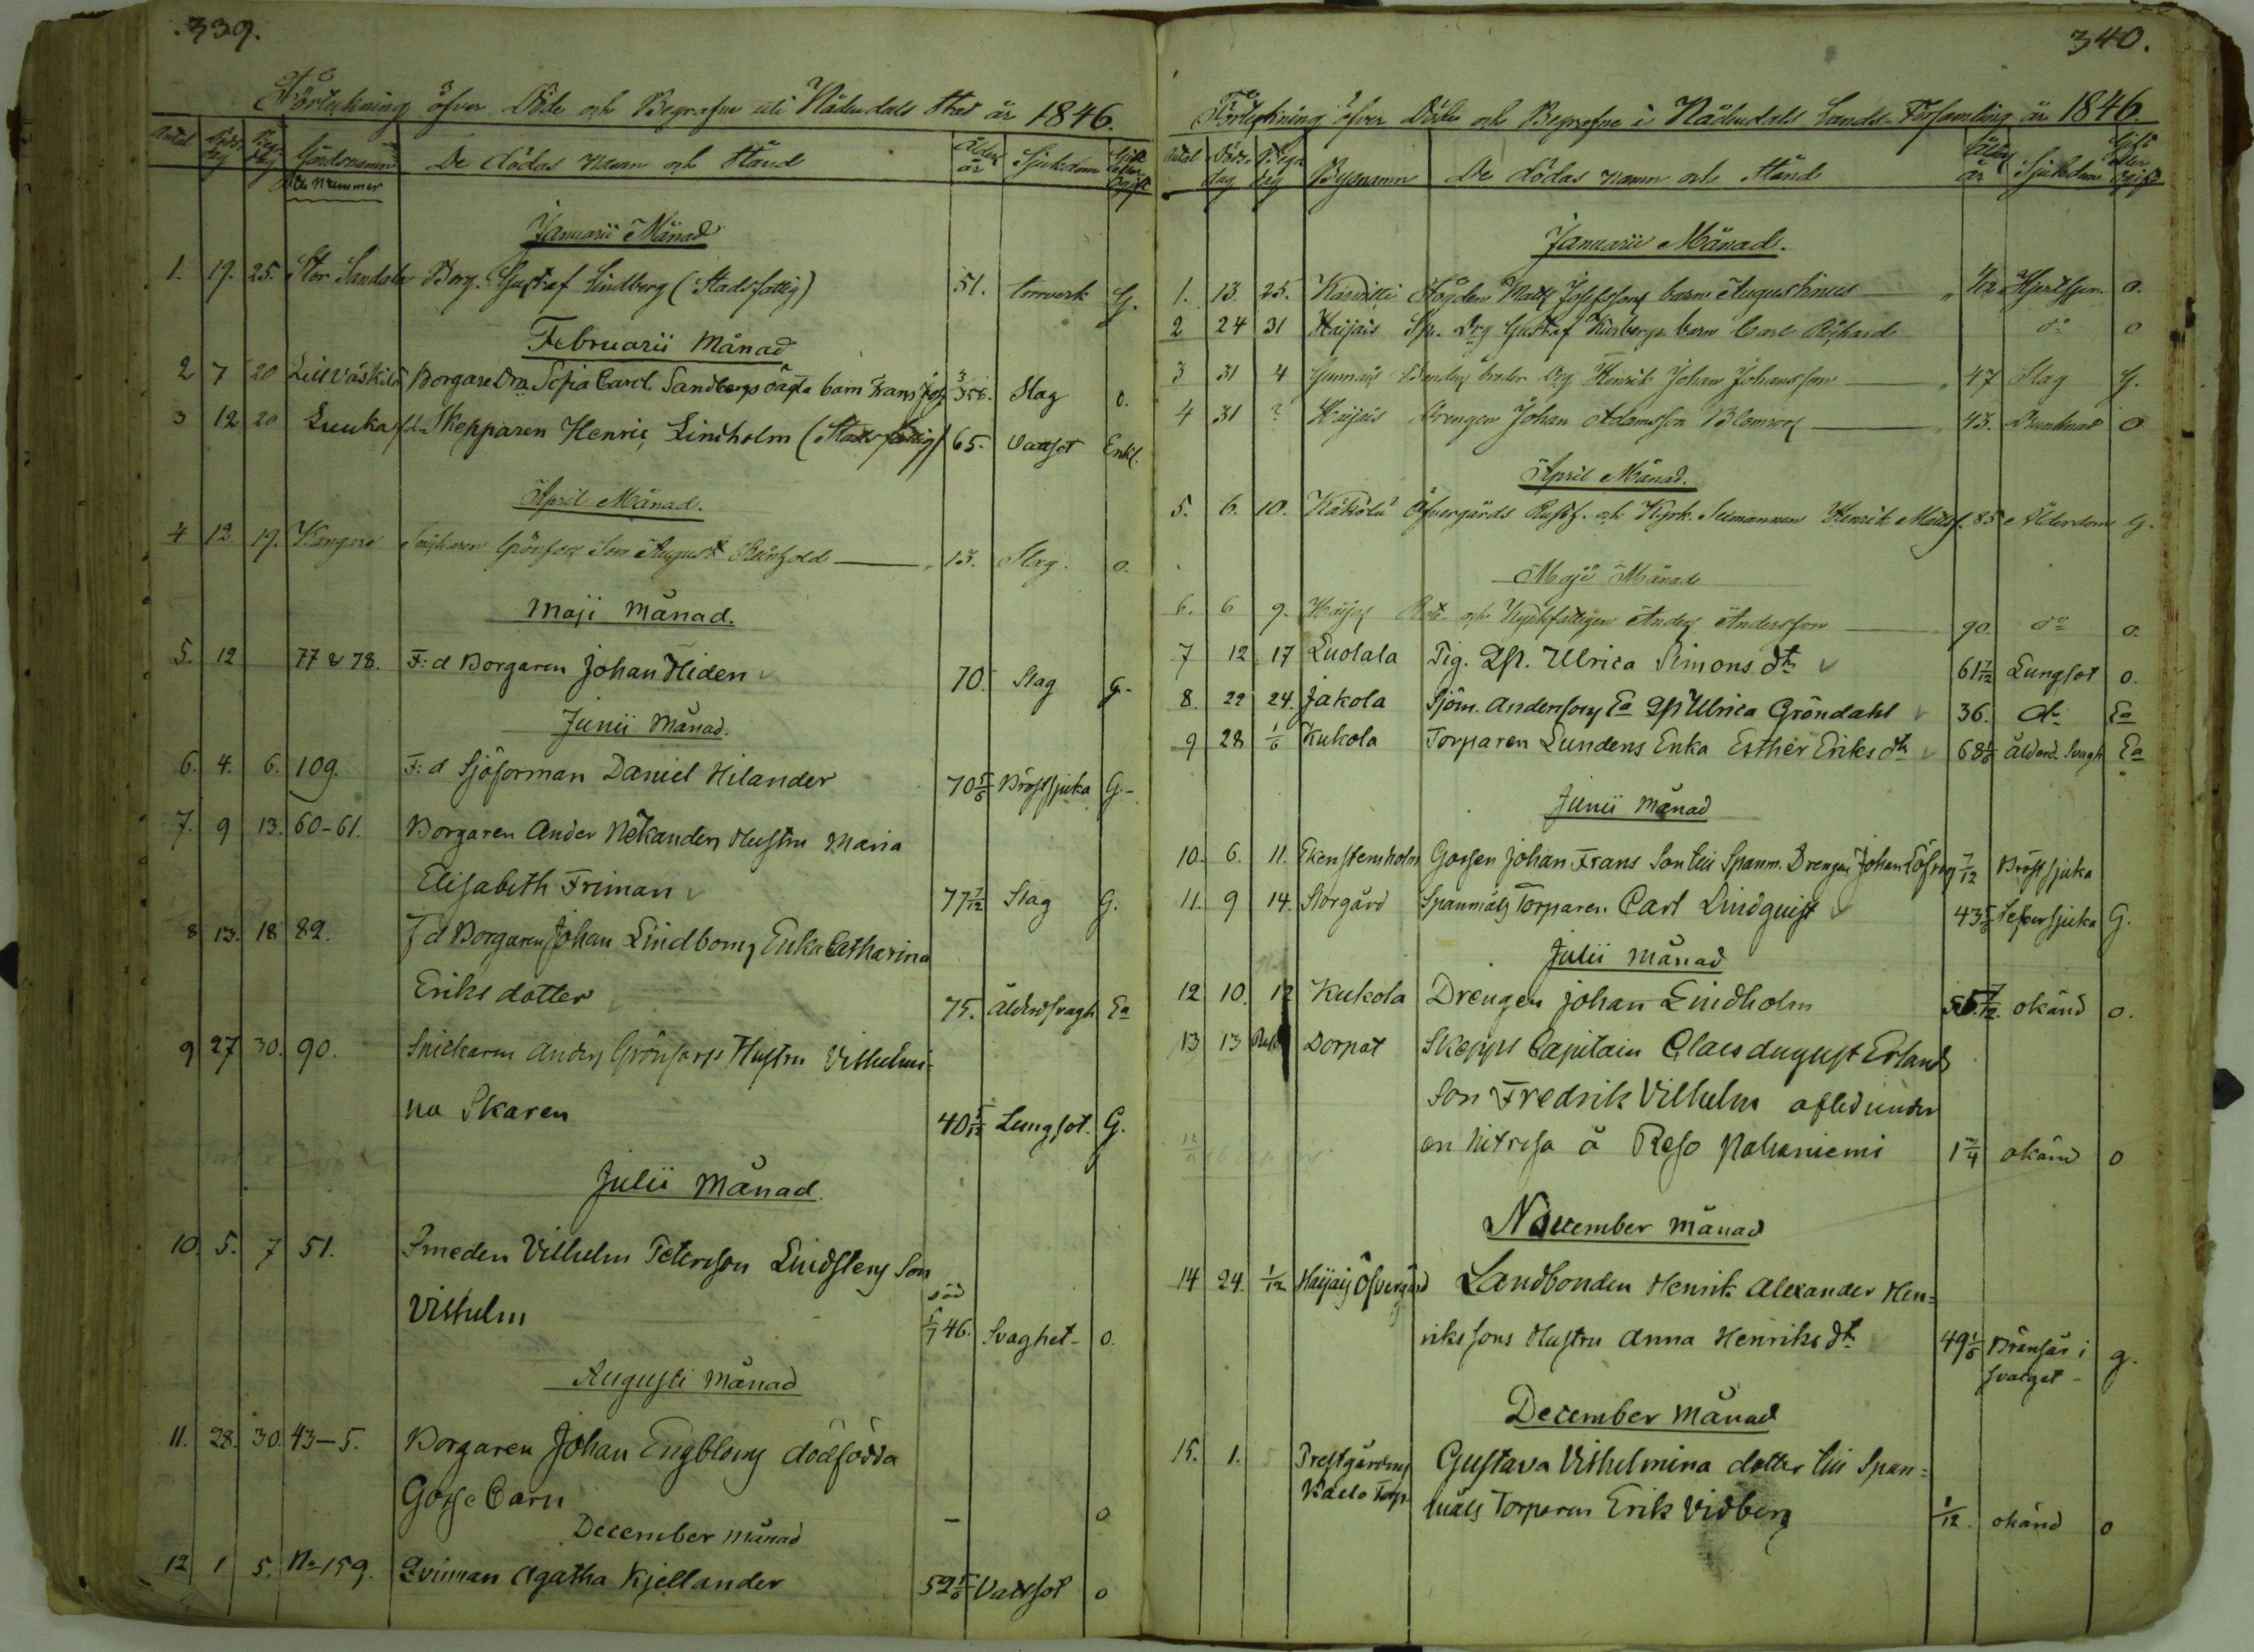 339.
Förteckning öfver Döde och Begrafne uti Nådendals Stad år 1846.
Antal Döds dag Begr. dag Gårdsnamn och Nummer De dödas namn och Stånd Ålder år Sjukdom Gift eller Ogift
Januarii Månad
1. 19. 25. Stor Sandala Borg. Gustaf Lindberg (Stadsfattig) 51. G.
Februarii Månad
2 7 20 Lill Väskilä Borgare Dr. Sofia Carol. Sandbergs oägta barn Frans Slag o.
3 12 20 Luuka f.d. Skepparen Henric Lindholm (Stadsfattig) 65. Vattsot Enkl.
April Månad.
4 12. 19. Kangas Snickaren Grönfors Son August Reinhold 13. Slag. o.
Maji Månad.
5. 12 77 & 78. F:d Borgaren Johan Hiden 70. Slag G.-
Junii Månad.
6. 4. 6. 109. F:d Sjöforman Daniel Hilander 70 5/6 Bröstsjuka G.-
7. 9 13. 60-61. Borgaren Ander Nekanders Hustru Maria
Elisabeth Friman 77 7/12 Slag G.
8 13. 18 82. f d Borgaren Johan Lindboms Enka Catharina
Eriks dotter 75. ålderdsvagh Ea
9 27 30. 90. Snickaren Anders Grönfors Hustru Vilhelmi-
na Skaren 40 5/12 Lungsot. G.
Julii Månad.
10. 5. 7 51. Smeden Vilhelm Peterson Lindstens Son
Vilhelm född 5/7 46. Svaghet- o.
Augusti Månad
11. 28. 30. 43-5. Borgaren Johan Engbloms dödfödda
Gosse Barn - o
December Månad
12 1 5. No 159. Qvinnan Agatha Kjellander 52 5/6 Vattsot o
340.
Förteckning öfver Döde och Begrafne i Nådendals Lands Församling år 1846.
Antal Döds dag Begr. dag Bysnamn De dödas namn och Stånd Ålder år Sjukdom Gift eller Ogift
Januarii Månad.
1. 13. 25. Karvitti Matts Josefssons barn Augustinus 1/12 o.
2 24 31 Haijais Sp. Drg Gustaf barn Carl Richard do o
3 31 4 broder Drg Henrik Johan Johansson 47 Slag G.
4 31 ? Haijais Drengen Johan Adamsson Blomroos 43. o
April Månad.
5. 6. 10. Kökölä Öfvergårds Rusth. och Kyrk. Sexmannen Henrik Mattss. 85 Ålderdom G.
Maji Månad
6. 6 9. Haijas Rote och Kyrkfattigen Anders Andersson 90. do o.
7 12 17 Luolala Tig. Qp. Ulrica Simons dtr 61 7/12 Lungsot o.
8. 22 24. Jakola Sjöm. Anderssons Ea Qp Ulrica Gröndahl 36. do Ea
9 28 1/6 Kukola Torparen Lundens Enka Esther Eriks dtr 68 1/6 Ålderd. Svagh Ea
Junii Månad
10. 6. 11. Ekenstensholm Gossen Johan Frans Son till Spanm. Drengen Johan 7/12 Bröstsjuka
11. 9 14. Storgård Spanmåls Torparen Carl Lindquist 43 5/6 Lefversjuka G.
Julii Månad
12 10. 12 Kukola Drengen Johan Lindholm 55 7/12. okänd o.
13 13 Dorpat Skepps Capitain Claes August Erland
Son Fredrik Vilhelm afled under
en hitresa å Reso Nahaniemi 1 3/4 okänd o
November Månad
14 24. 1/12 Haijais Öfvergård Landbonden Henrik Alexander Hen-
rikssons Hustru Anna Henriks dtr 49 1/6 Bränsår i svalget- g.
December Månad
15. 1. 5 Prestgårdens Kaelo Torp Gustava Vilhelmina dotter till Span-
måls Torparen Erik Vidberg 1/12. okänd o